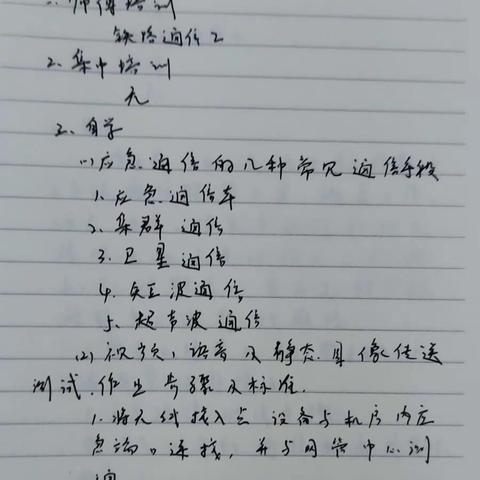 1. 师傅培训
铁路通信2
2. 集中培训
无
3、自学
(1) 应急通信的几种常见通信手段
1. 应急通信车
2. 集群通信
3. 卫星通信
4. 短波通信
5、超声波通信
(2) 视频、语音及静态图像传送
测试.作业步骤及标准.
1. 将无线接入点设备与机房内应
急端口连接, 并与网管中心测
通